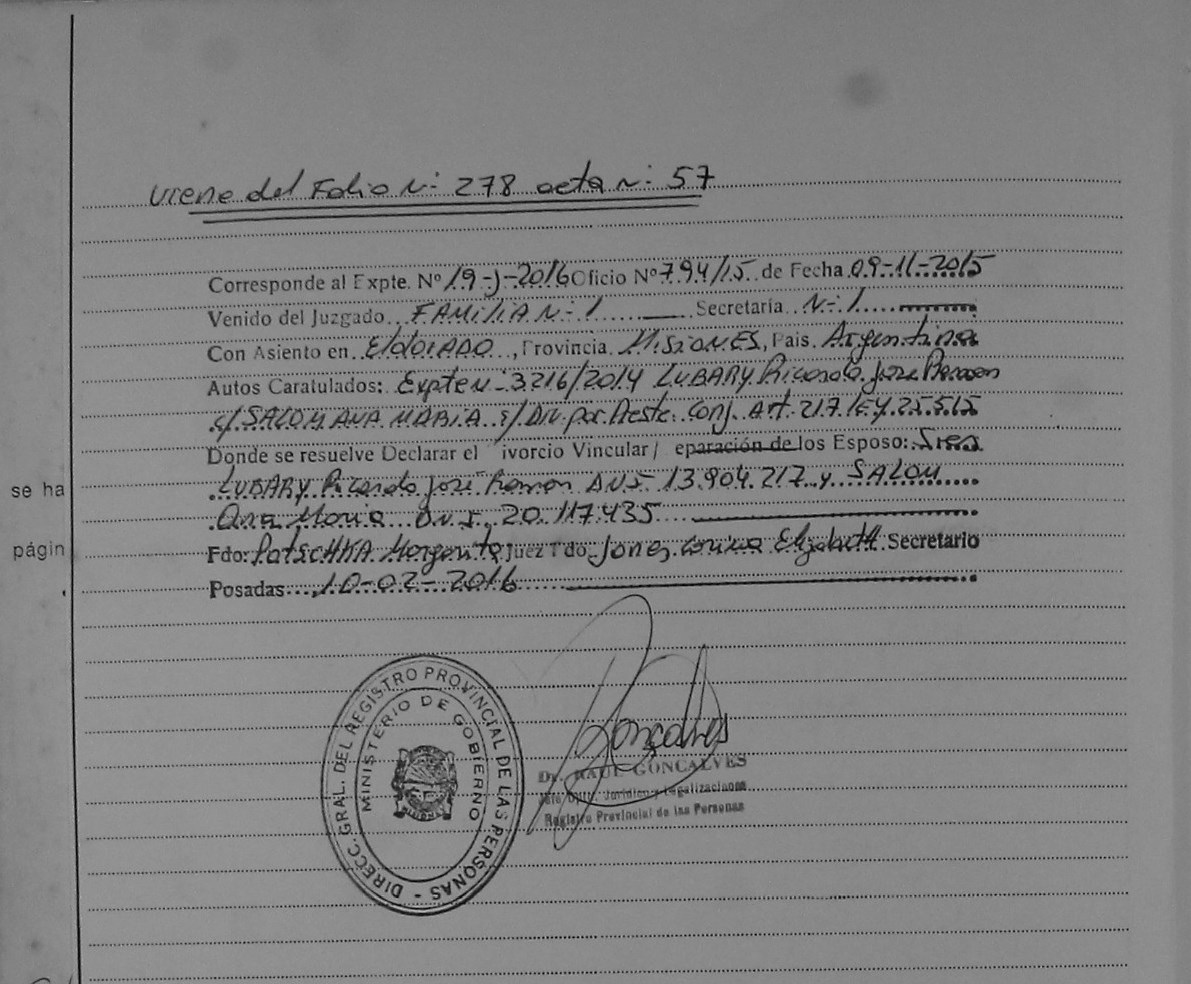 viene del Folio N: 278 acta N: 57
Corresponde al Expte. Nº 19-J-2016 Oficio Nº 794/15 de Fecha 09-11-2015
Venido del Juzgado FAMILIA N: 1 Secretaría N: 1
Con Asiento en ElDORADO, Provincia MISIONES, País Argentina
Autos Caratulados: Expte N: 3216/2014 LUBARY Ricardo José Ramon
c/ SALOM ANA MARIA s/ Div. por Preste. Conj. Art. 217. LEY. 25.515
Donde se resuelve Declarar el ivorcio Vincular/ eparación de los Esposo: Sres
LUBARY Ricardo José Ramon D.N.I. 13.904.217 y SALOM
Ana Maria D.N.I. 20.117.435
se ha
Fdo: Margarita Juez Fdo. Jones Elizabeth Secretario
págin
Posadas 10-02-2016
DIRECC. GRAL. DEL REGISTRO PROVINCIAL DE LAS PERSONAS -
MINISTERIO DE GOBIERNO
MISIONES
Goncalves
Dr. RAUL GONCALVES
Jefe Dpto. Jurídico y Legalizaciones
Registro Provincial de las Personas